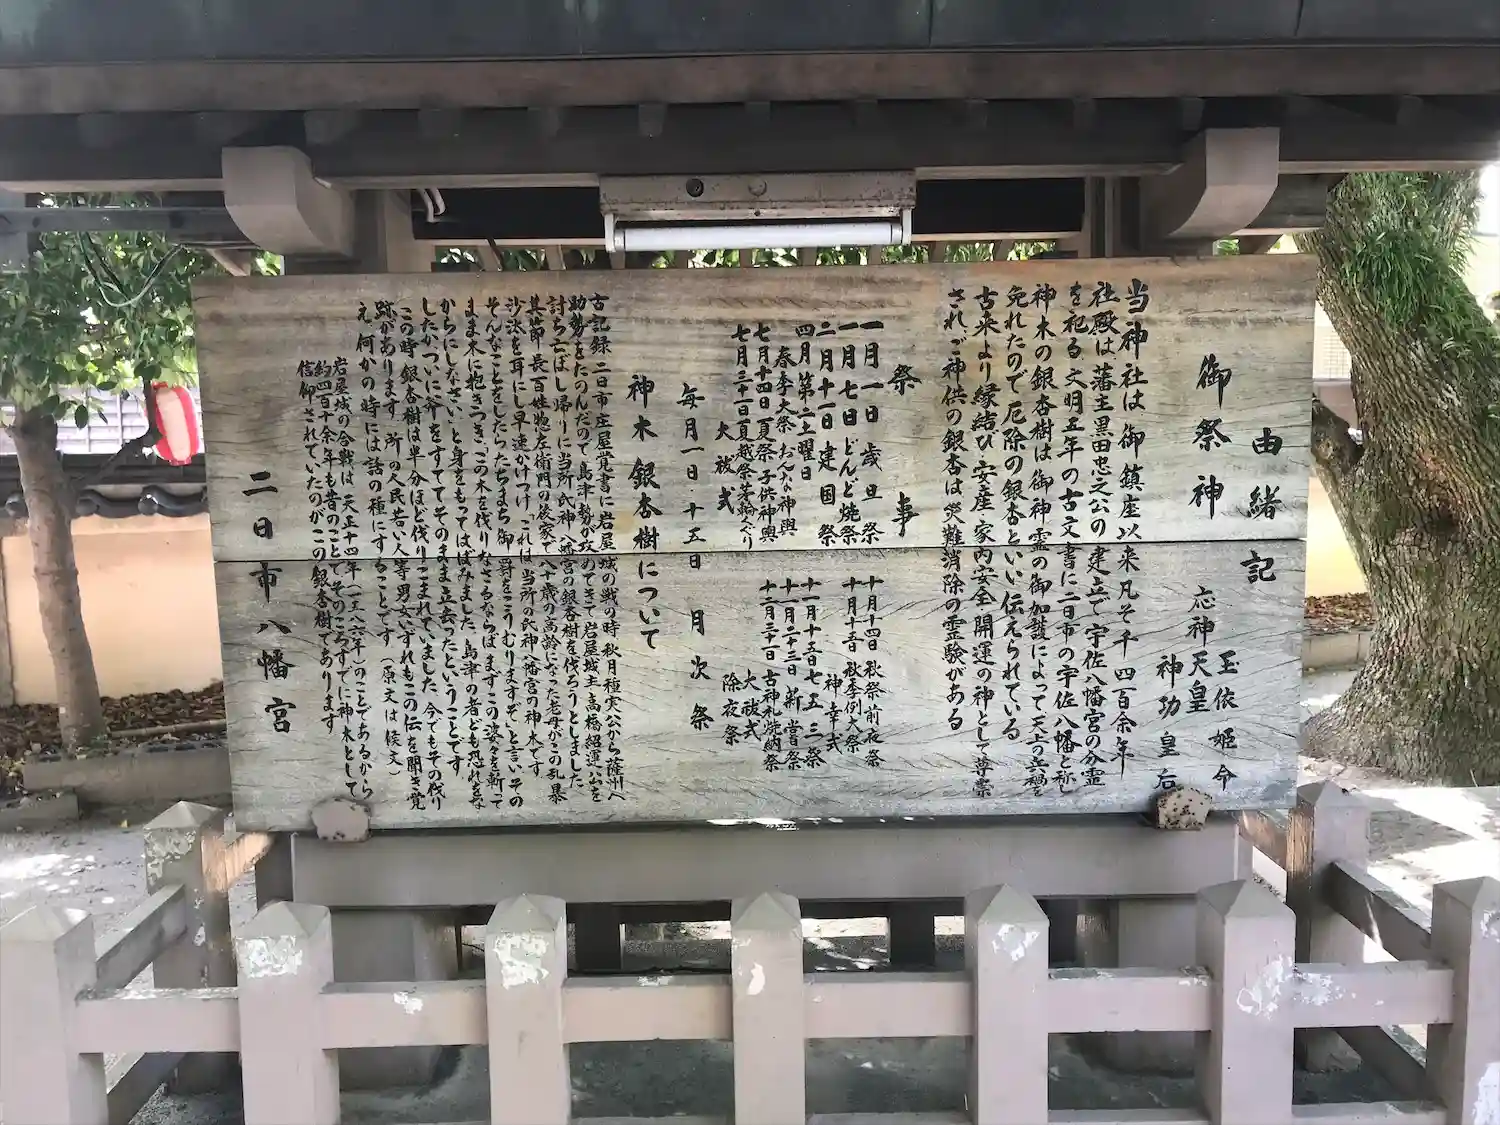 由緒記
御祭神
応神天皇
玉依姫命
神功皇后
当神社は御鎮座以来凡そ千四百余年
社殿は藩主黒田忠之公の建立で宇佐八幡宮の分霊
を祀る文明五年の古文書に二日市の宇佐八幡と称し
神木の銀杏樹は御神霊の御加護によって天士の兵禍を
免れたので厄除の銀杏といい伝えられている
古来より縁結び・安産・家内安全・開運の神として尊崇
されご神供の銀杏は災難消除の霊験がある
祭事
一月一日 歳旦祭
一月七日 どんど焼祭
二月十一日 建国祭
四月第二土曜日
春季大祭 おんな神輿
七月十四日 夏祭 子供神輿
七月三十一日 夏越祭 茅輪くぐり
大祓式
十月十四日 秋祭前夜祭
十月十五日 秋季例大祭
神幸式
十一月十五日 七五三祭
十一月二十三日 新嘗祭
十二月三十一日 古神札焼納祭
大祓式
除夜祭
毎月一日・十五日 月次祭
神木 銀杏樹について
古記録 二日市庄屋覚書に岩屋城の戦の時 秋月種実公から薩州へ
助勢をたのんだので島津勢が攻めてきて岩屋城主 高橋紹運公を
討ち亡ぼし帰りに当所氏神 八幡宮の銀杏樹を伐ろうとしました
其節 長百姓惣左衛門の後家で八十歳の高齢になった老母がこの乱暴
沙汰を耳にし早速かけつけ これは当所の氏神八幡宮の神木です
そんなことをしたらたちまち御罰をこうむりますぞ と言い その
まま木に抱きつき この木を伐りなさるならばまずこの婆々を斬って
からにしなさい と身をもってはばみました 島津の者ども恐れをな
したか ついに斧をすててそのまま立去ったということです
この時 銀杏樹は半分ほど伐りこまれていました 今でもその伐り
跡があります 所の人民若い人等男女いずれもこの伝を聞き覚
え 何かの時には話の種にすることです (原文は候文)
岩屋城の合戦は天正十四年(一五八六年)のことであるから
約四百十余年も昔のことで そのころすでに神木として
信仰されていたのがこの銀杏樹であります
二日市八幡宮